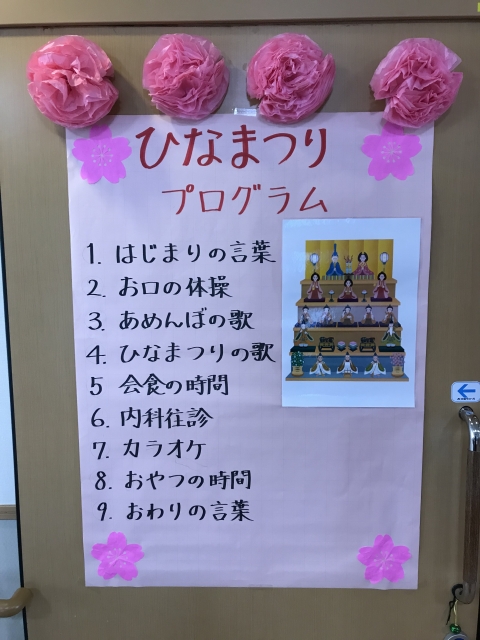 ひなまつり
プログラム
1. はじまりの言葉
2. お口の体操
3. あめんぼの歌
4. ひなまつりの歌
5 会食の時間
6. 内科往診
7. カラオケ
8. おやつの時間
9. おわりの言葉